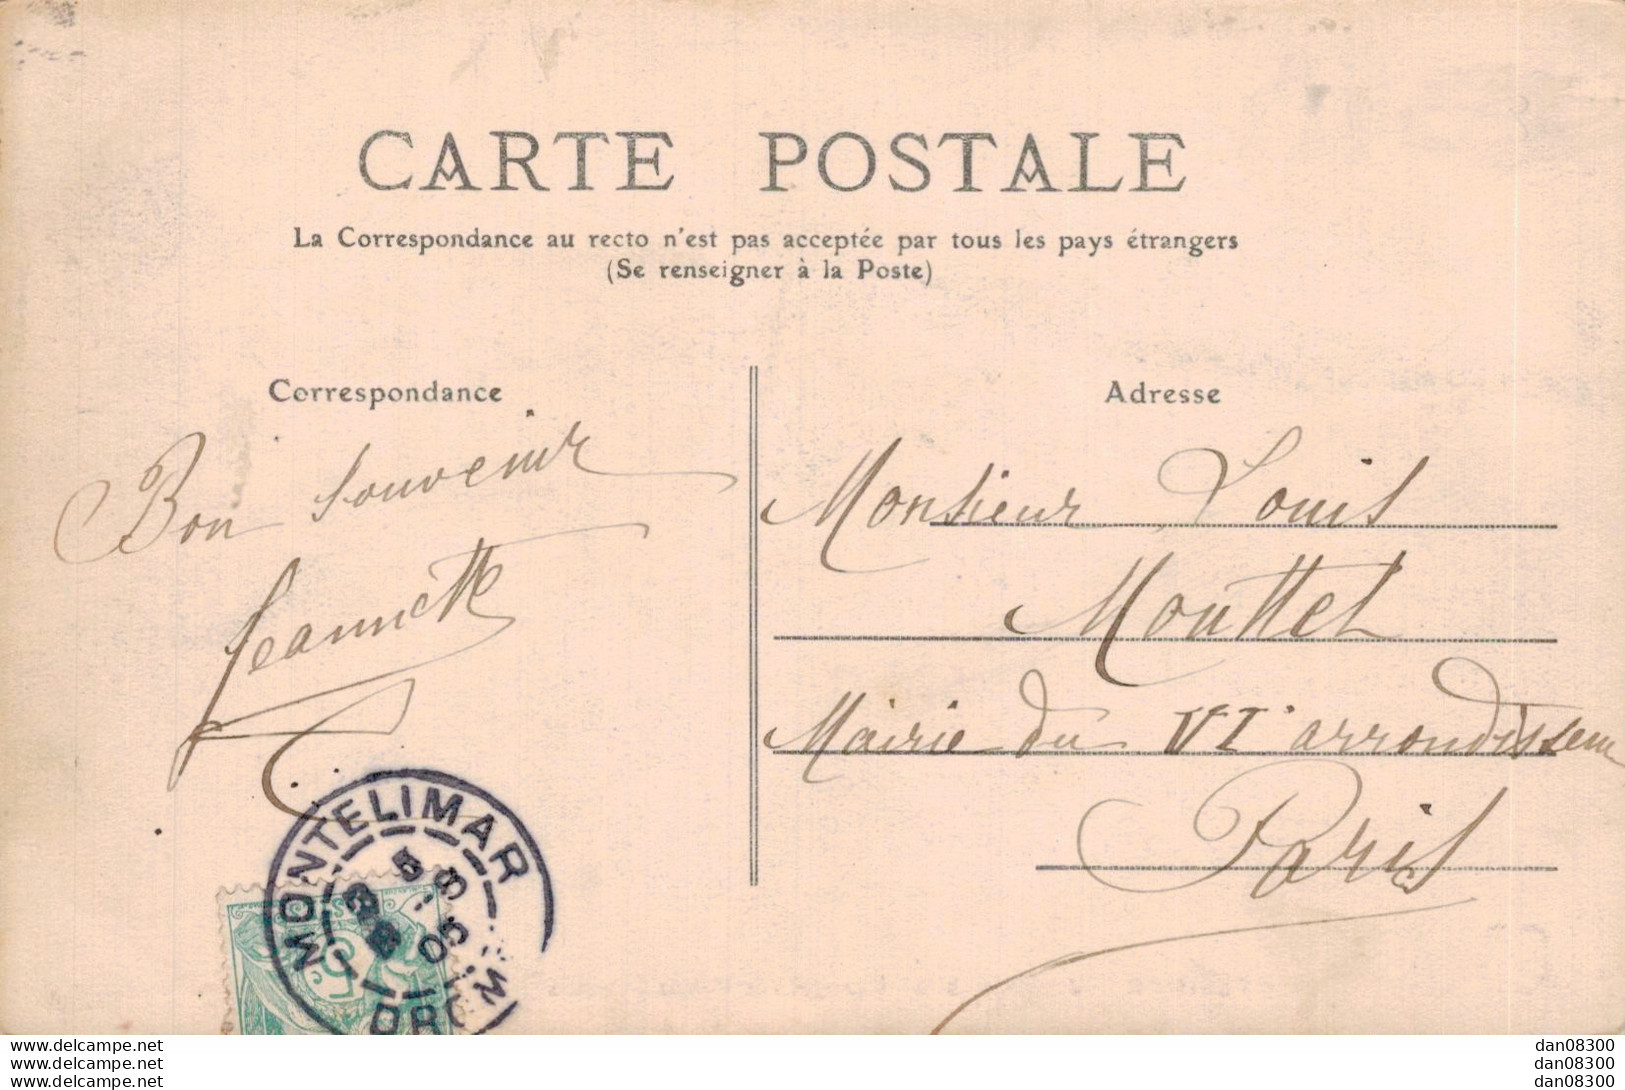 CARTE POSTALE
La Correspondance au recto n'est pas acceptée par tous les pays étrangers
(Se renseigner à la Poste)
Correspondance
Bon souvenir
Jeannette
Adresse
Monsieur Louis
Mouttet
Mairie du VI arrondissem
Paris
MONTELIMAR
5
05
DROM
www.delcampe.net
www.delcampe.net
www.delcampe.net
dan08300
dan08300
dan08300